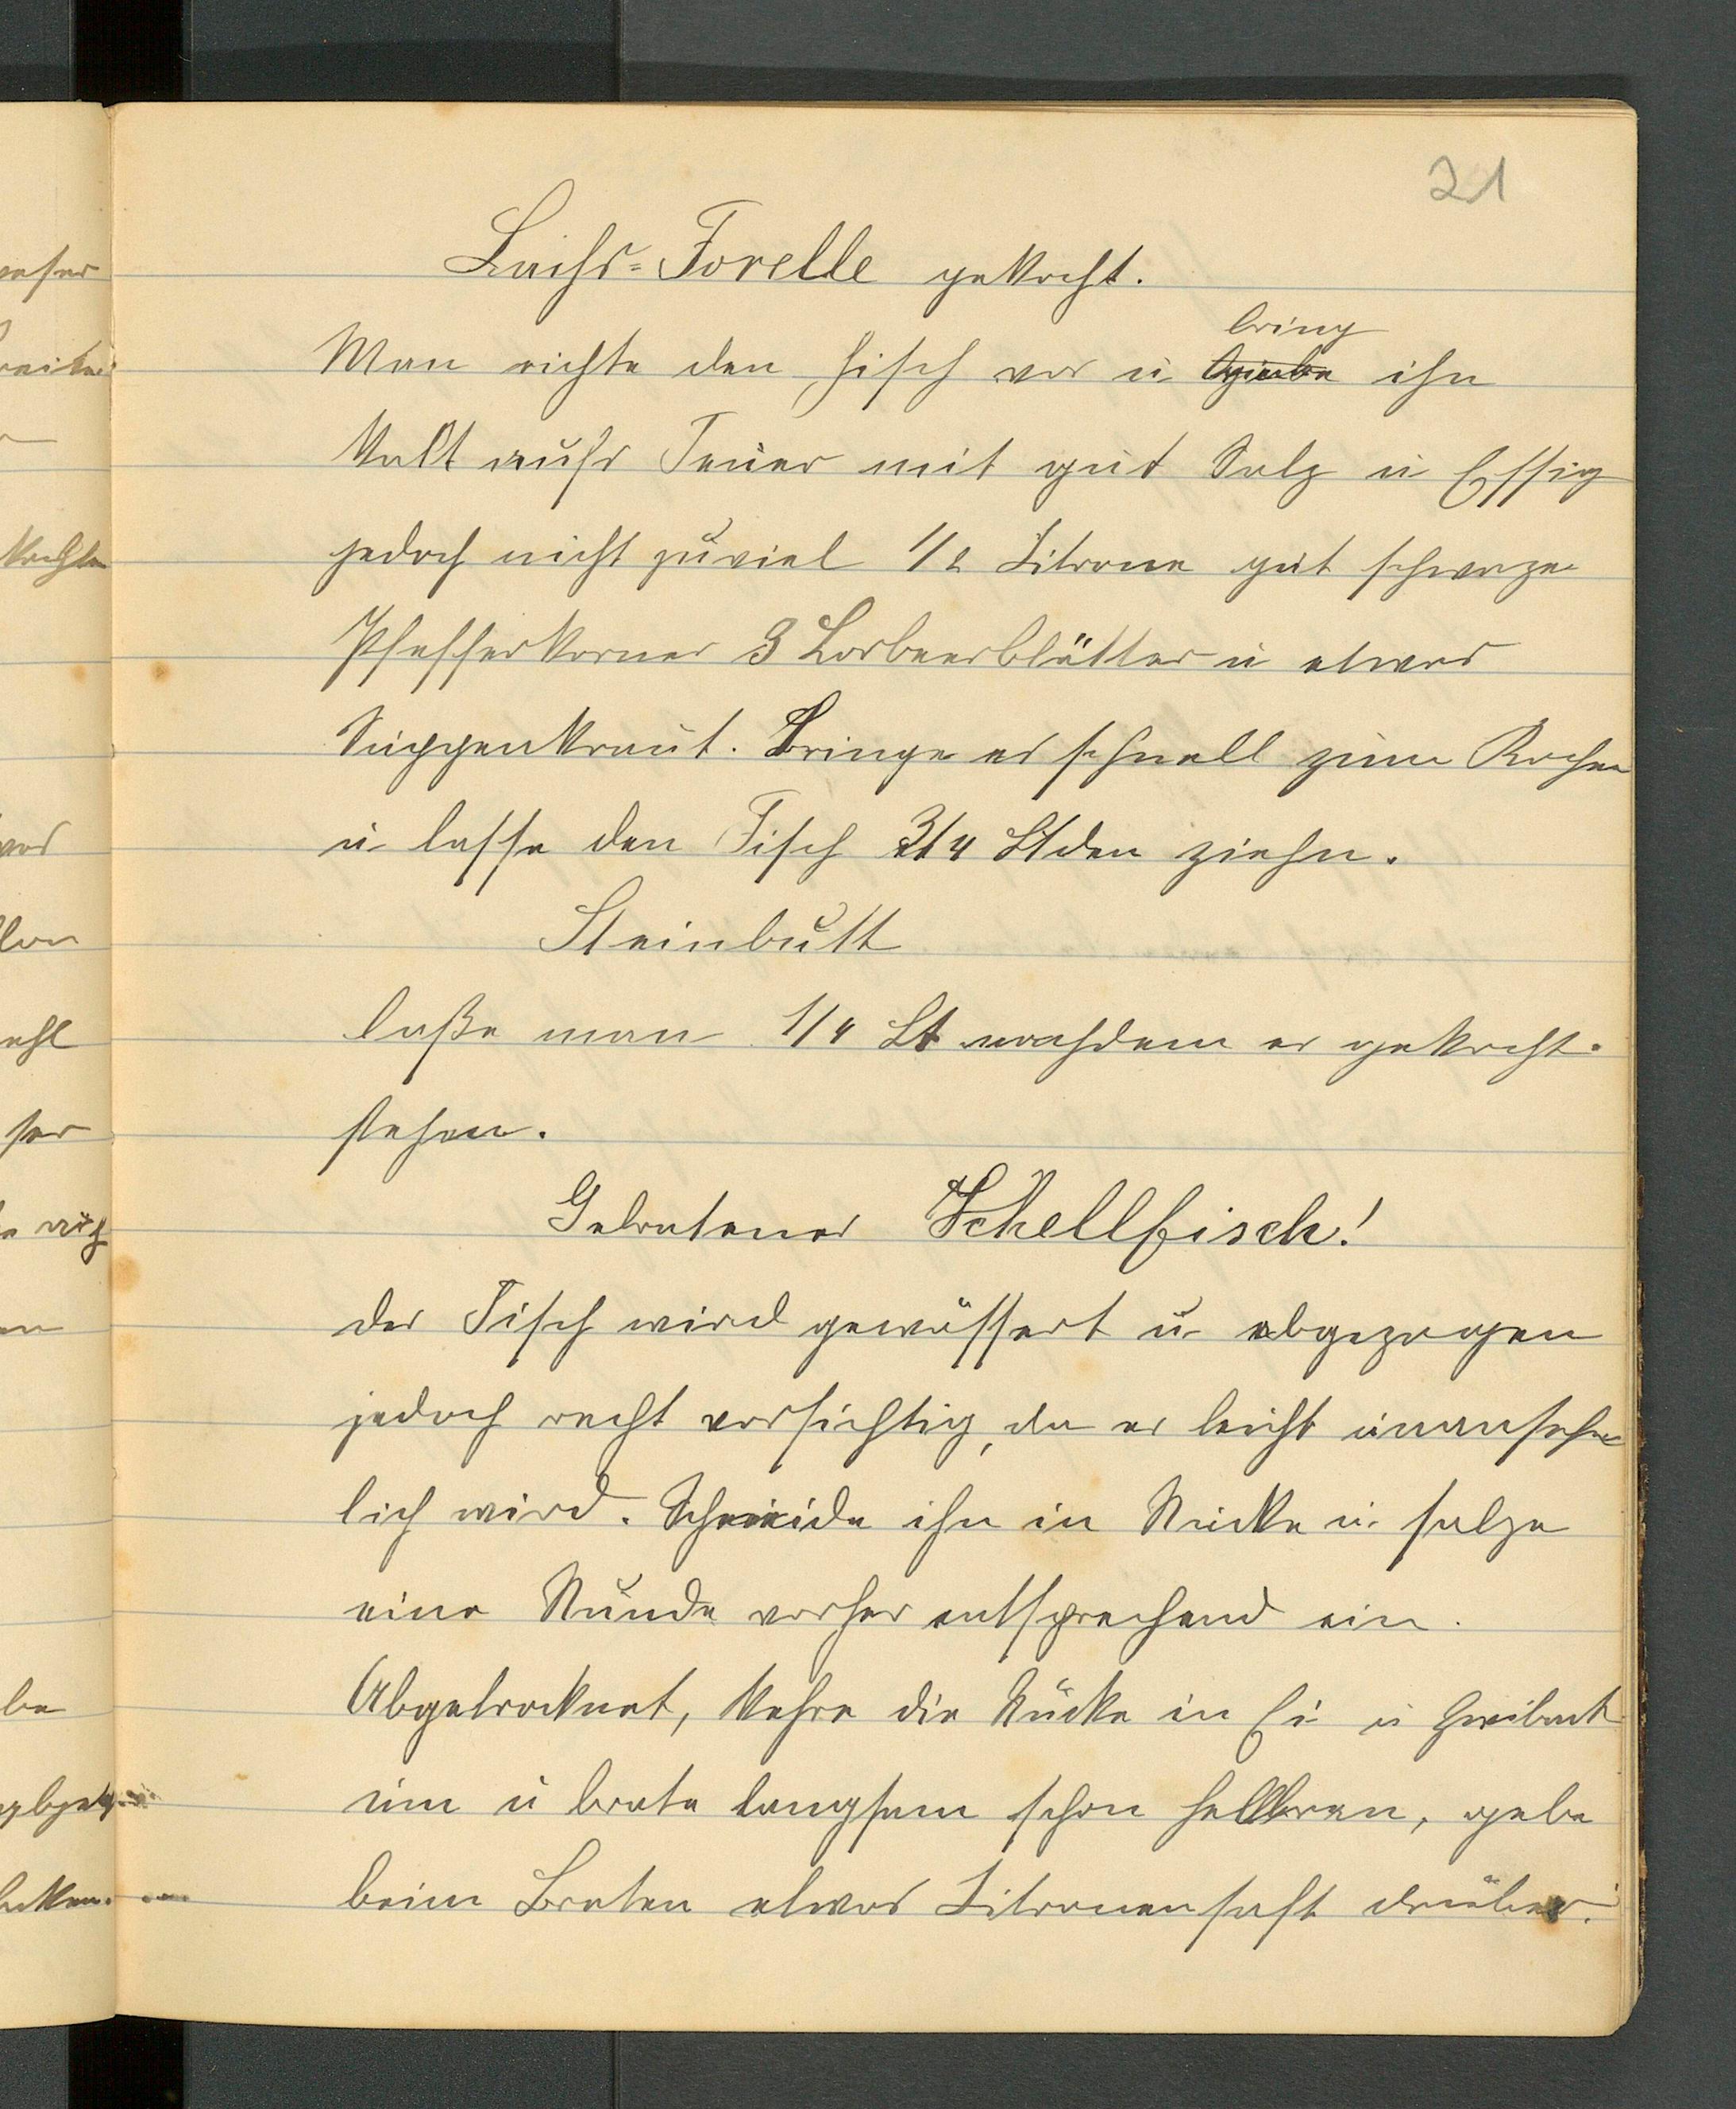 21
Lachs=Forelle gekocht.
bring
Man richte den Fisch vor u ihn
kalt aufs Feuer mit gut Salz u Essig
jedoch nicht zuviel 1/2 Zitrone gut schwarze
Pfefferkorner 3 Lorbeerblätter u etwas
Suppenkraut. Bringe es schnell zum Kochen
u lasse den Fisch 3/4 Stden ziehn.
Steinbutt
laße man 1/4 St nachdem er gekocht.
stehen.
Gebratener Schellfisch!
der Fisch wird gewässert u abgezogen
jedoch recht vorsichtig, da er leicht unansehn
lich wird. Schneide ihn in Stücke u salze
eine Stunde vorher entsprechend ein.
Abgetrocknet, kehre die Stücke in Ei u Zwiback
um u brate langsam schon hellbraun, gebe
beim Braten etwas Zitronensaft drüber.